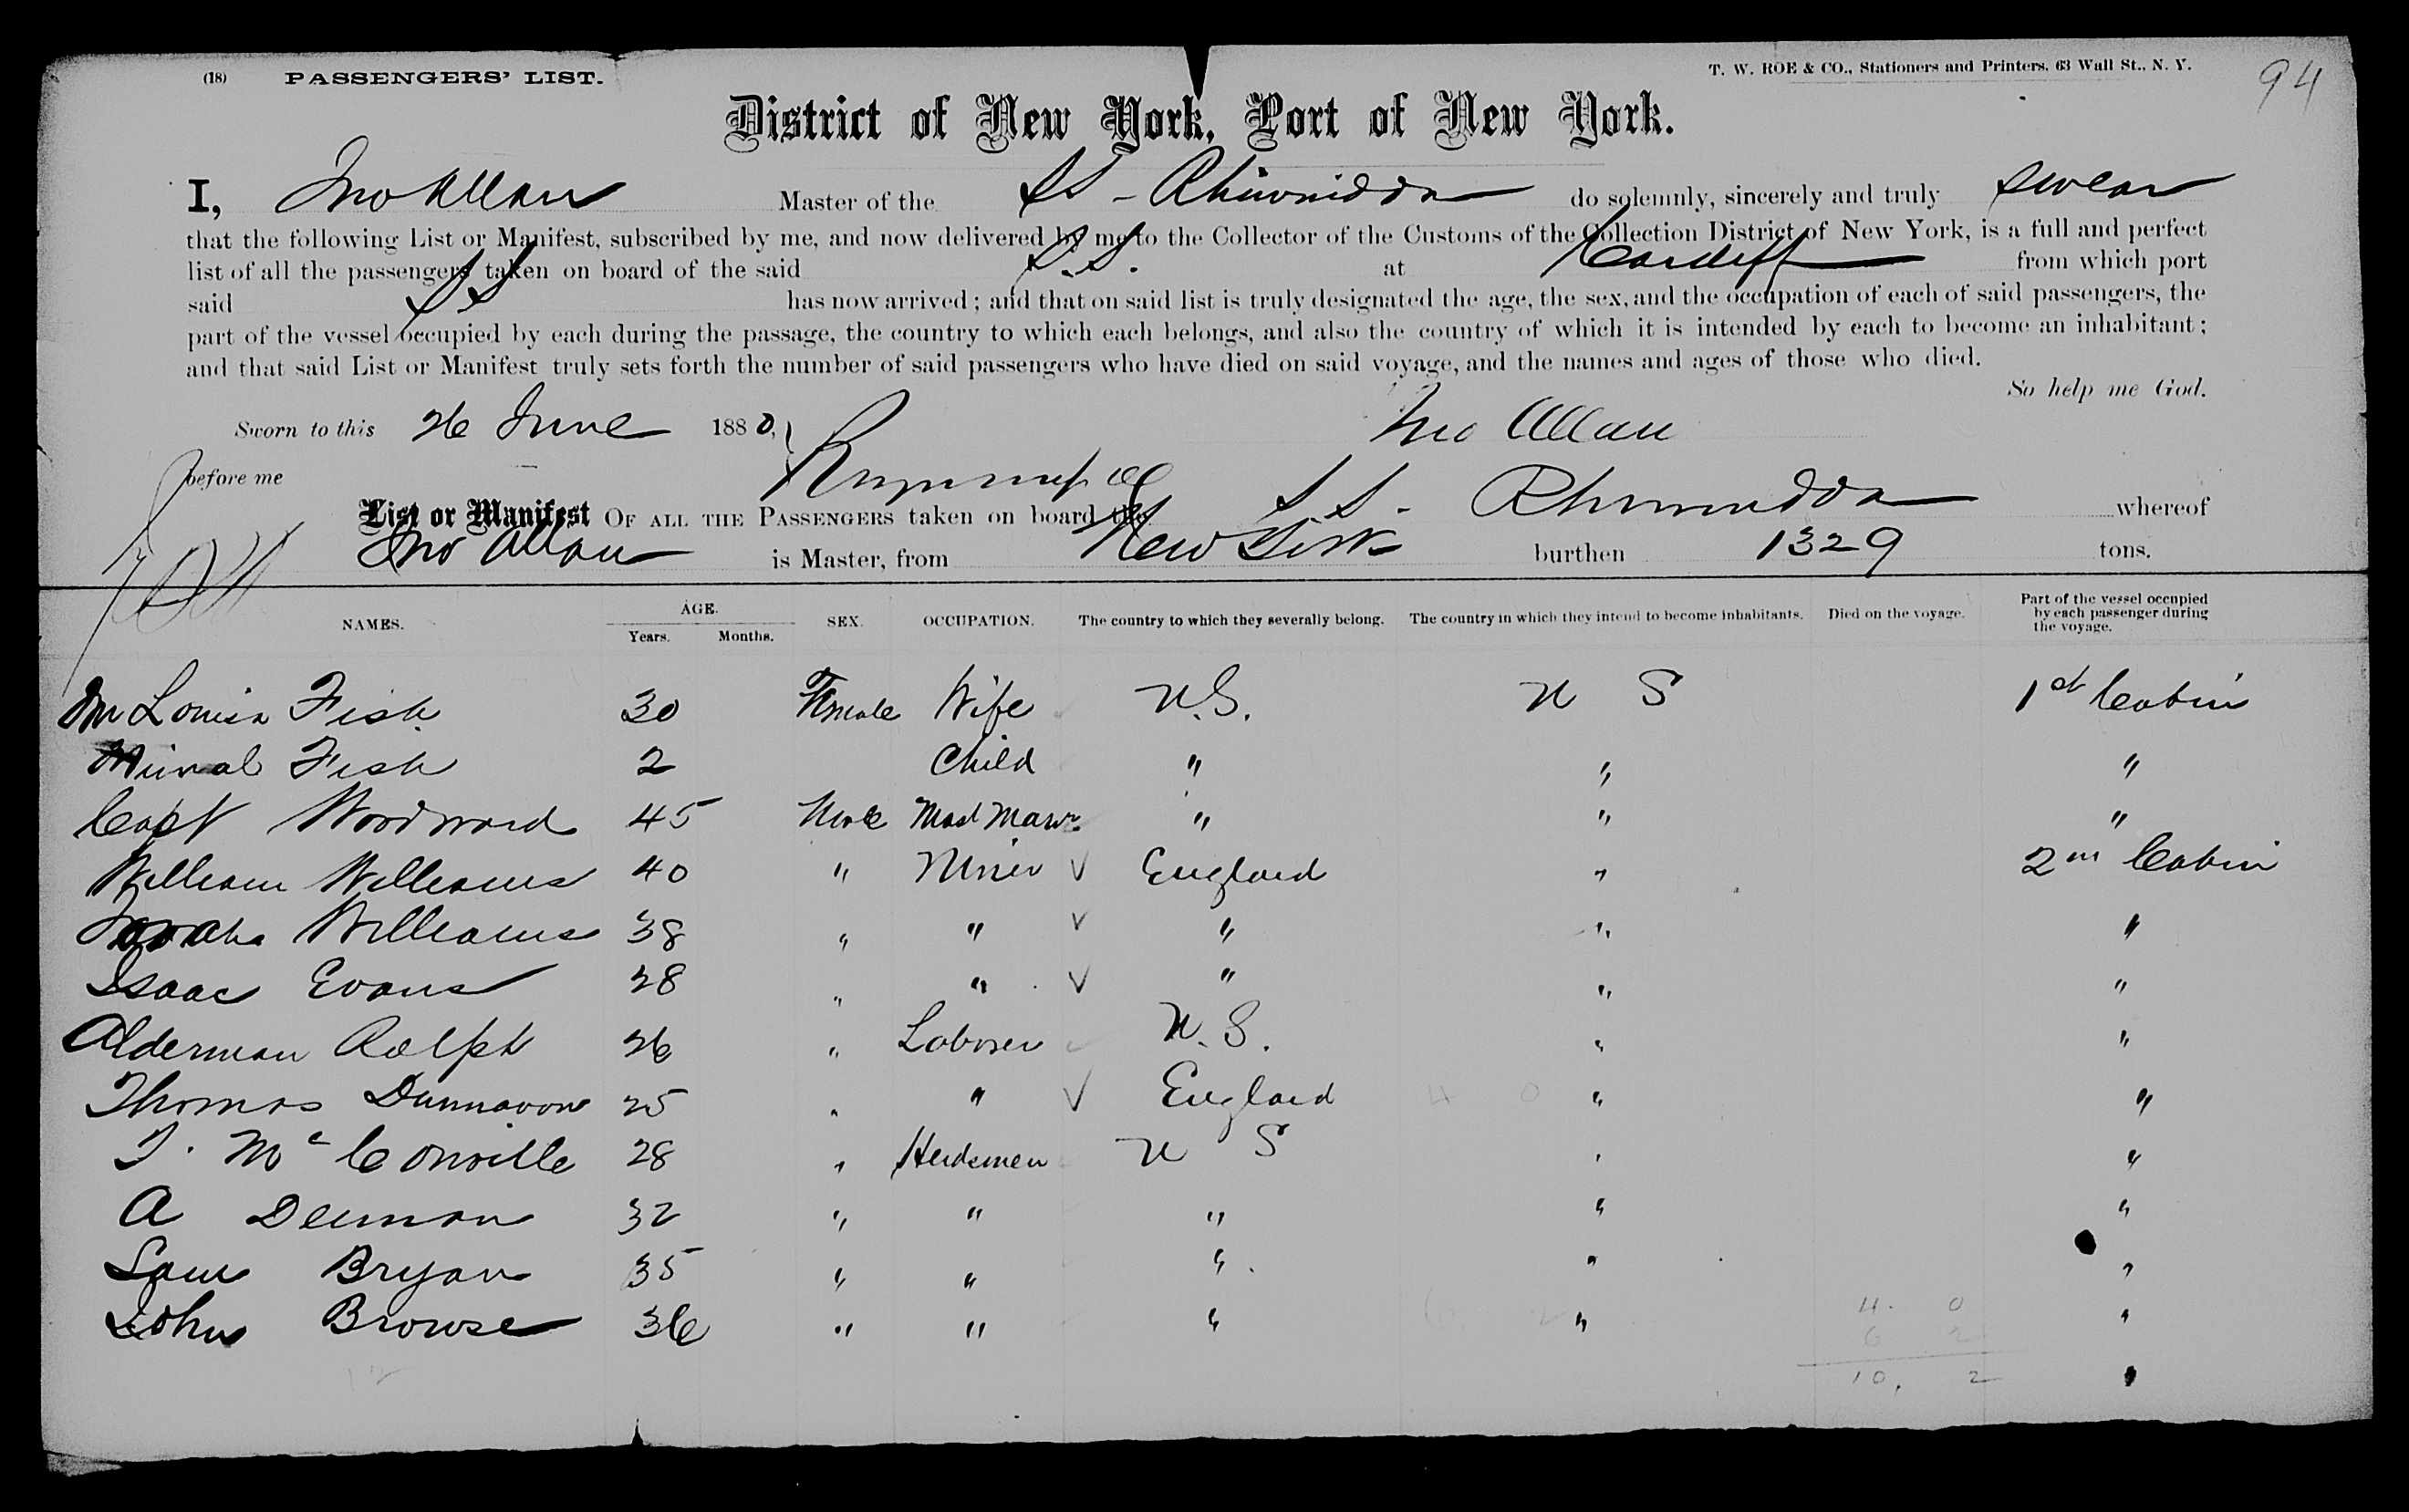 (18) PASSENGERS' LIST. T. W. ROE & CO., Stationers and Printers, 63 Wall St., N. Y. 94
District of New York, Port of New York.
I, Jno Allan Master of the SS - do solemnly, sincerely and truly swear
that the following List or Manifest, subscribed by me, and now delivered by me to the Collector of the Customs of the Collection District of New York, is a full and perfect
list of all the passengers taken on board of the said S.S. at Cardiff from which port
said SS has now arrived; and that on said list is truly designated the age, the sex, and the occupation of each of said passengers, the
part of the vessel occupied by each during the passage, the country to which each belongs, and also the country of which it is intended by each to become an inhabitant;
and that said List or Manifest truly sets forth the number of said passengers who have died on said voyage, and the names and ages of those who died.
So help me God.
Sworn to this 26 June 1880, Jno Allan
before me
List or Manifest OF ALL THE PASSENGERS taken on board the S S - whereof
Jno Allan is Master, from New York burthen 1329 tons.
NAMES. AGE. Years. Months. SEX. OCCUPATION. The country to which they severally belong. The country in which they intend to become inhabitants. Died on the voyage. Part of the vessel occupied by each passenger during the voyage.
Louisa Fish 30 Female Wife U.S. U S 1st Cabin
Fish 2 Child " " "
Capt Woodward 45 Male " " "
William Williams 40 " Miner V England " 2nd Cabin
Williams 38 " " V " " "
Isaac Evans 28 " " V " " "
Alderman Rolph 26 " Laborer U.S. " "
Thomas Dunnavon 25 " " V England 4 0 " "
T. McConville 28 " Herdsmen U S " "
A Denman 32 " " " " "
Sam Bryan 35 " " " " "
John Browse 36 " " " " "
4. 0
6 2
12 10, 2 "